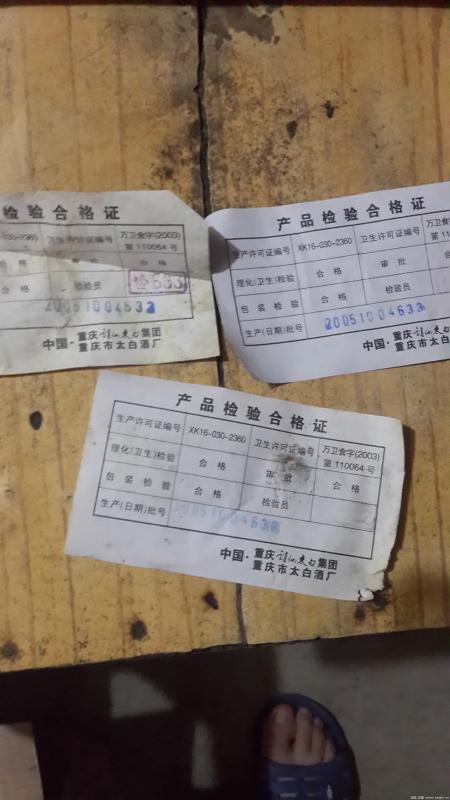 检验合格证
030-2360 卫生许可证编号 万卫食字(2003)
第110064号
合格 审批 合格
合格 检验员 检633
2005100463
中国·重庆诗仙太白集团
重庆市太白酒厂
产品检验合格证
生产许可证编号 XK16-030-2360 卫生许可证编号 万卫食字
第11
理化(卫生)检验 合格 审批
包装检验 合格 检验员
生产(日期)批号 200510 04633
中国·重庆诗仙太白集团
重庆市太白酒厂
产品检验合格证
生产许可证编号 XK16-030-2360 卫生许可证编号 万卫食字(2003)
第110064号
理化(卫生)检验 合格 审批 合格
包装检验 合格 检验员
生产(日期)批号
中国·重庆诗仙太白集团
重庆市太白酒厂